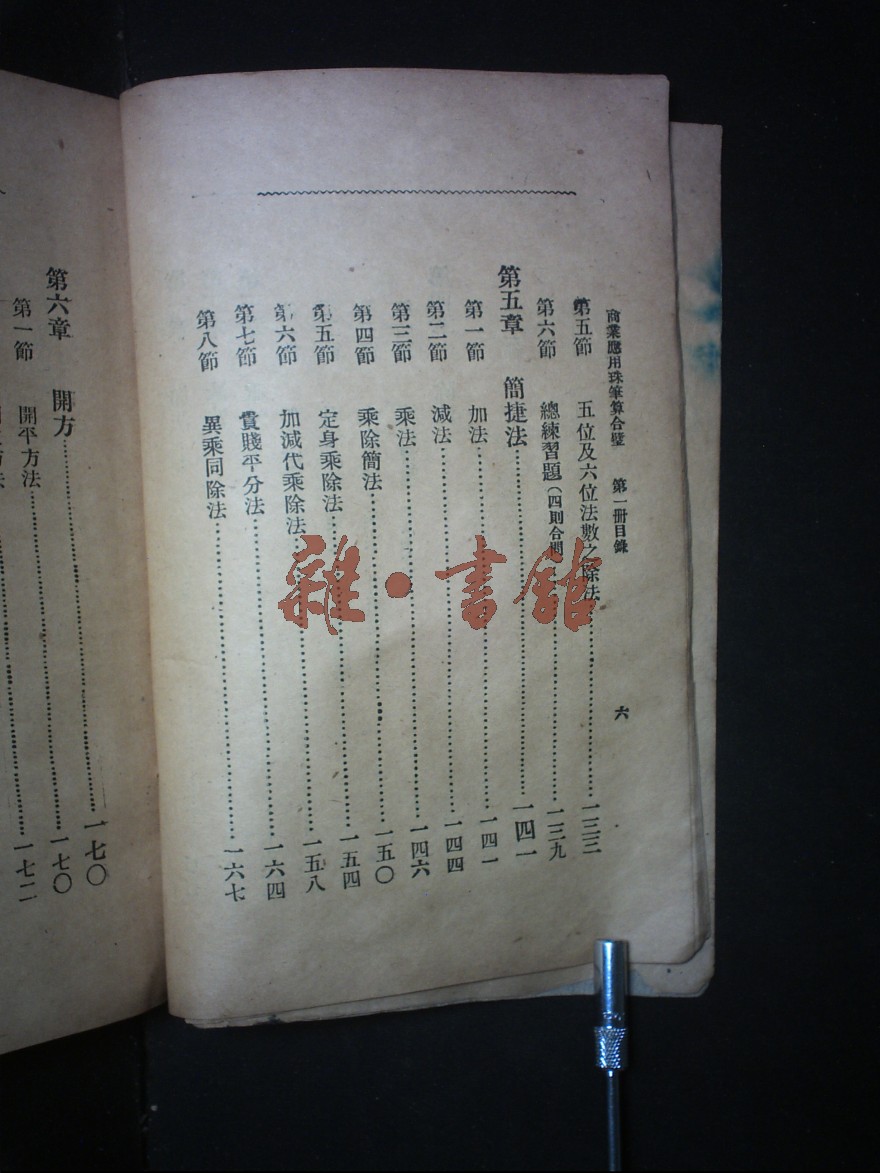 商業應用珠筆算合璧 第一冊目錄 六
第五節 五位及六位法數之除法……一三三
第六節 總練習題(四則合……一三九
第五章 簡捷法……一四一
第一節 加法……一四一
第二節 減法……一四四
第三節 乘法……一四六
第四節 乘除簡法……一五〇
第五節 定身乘除法……一五四
第六節 加減代乘除法……一五八
第七節 貴賤平分法……一六四
第八節 異乘同除法……一六七
第六章 開方……一七〇
第一節 開平方法……一七〇
一七二
雜·書館